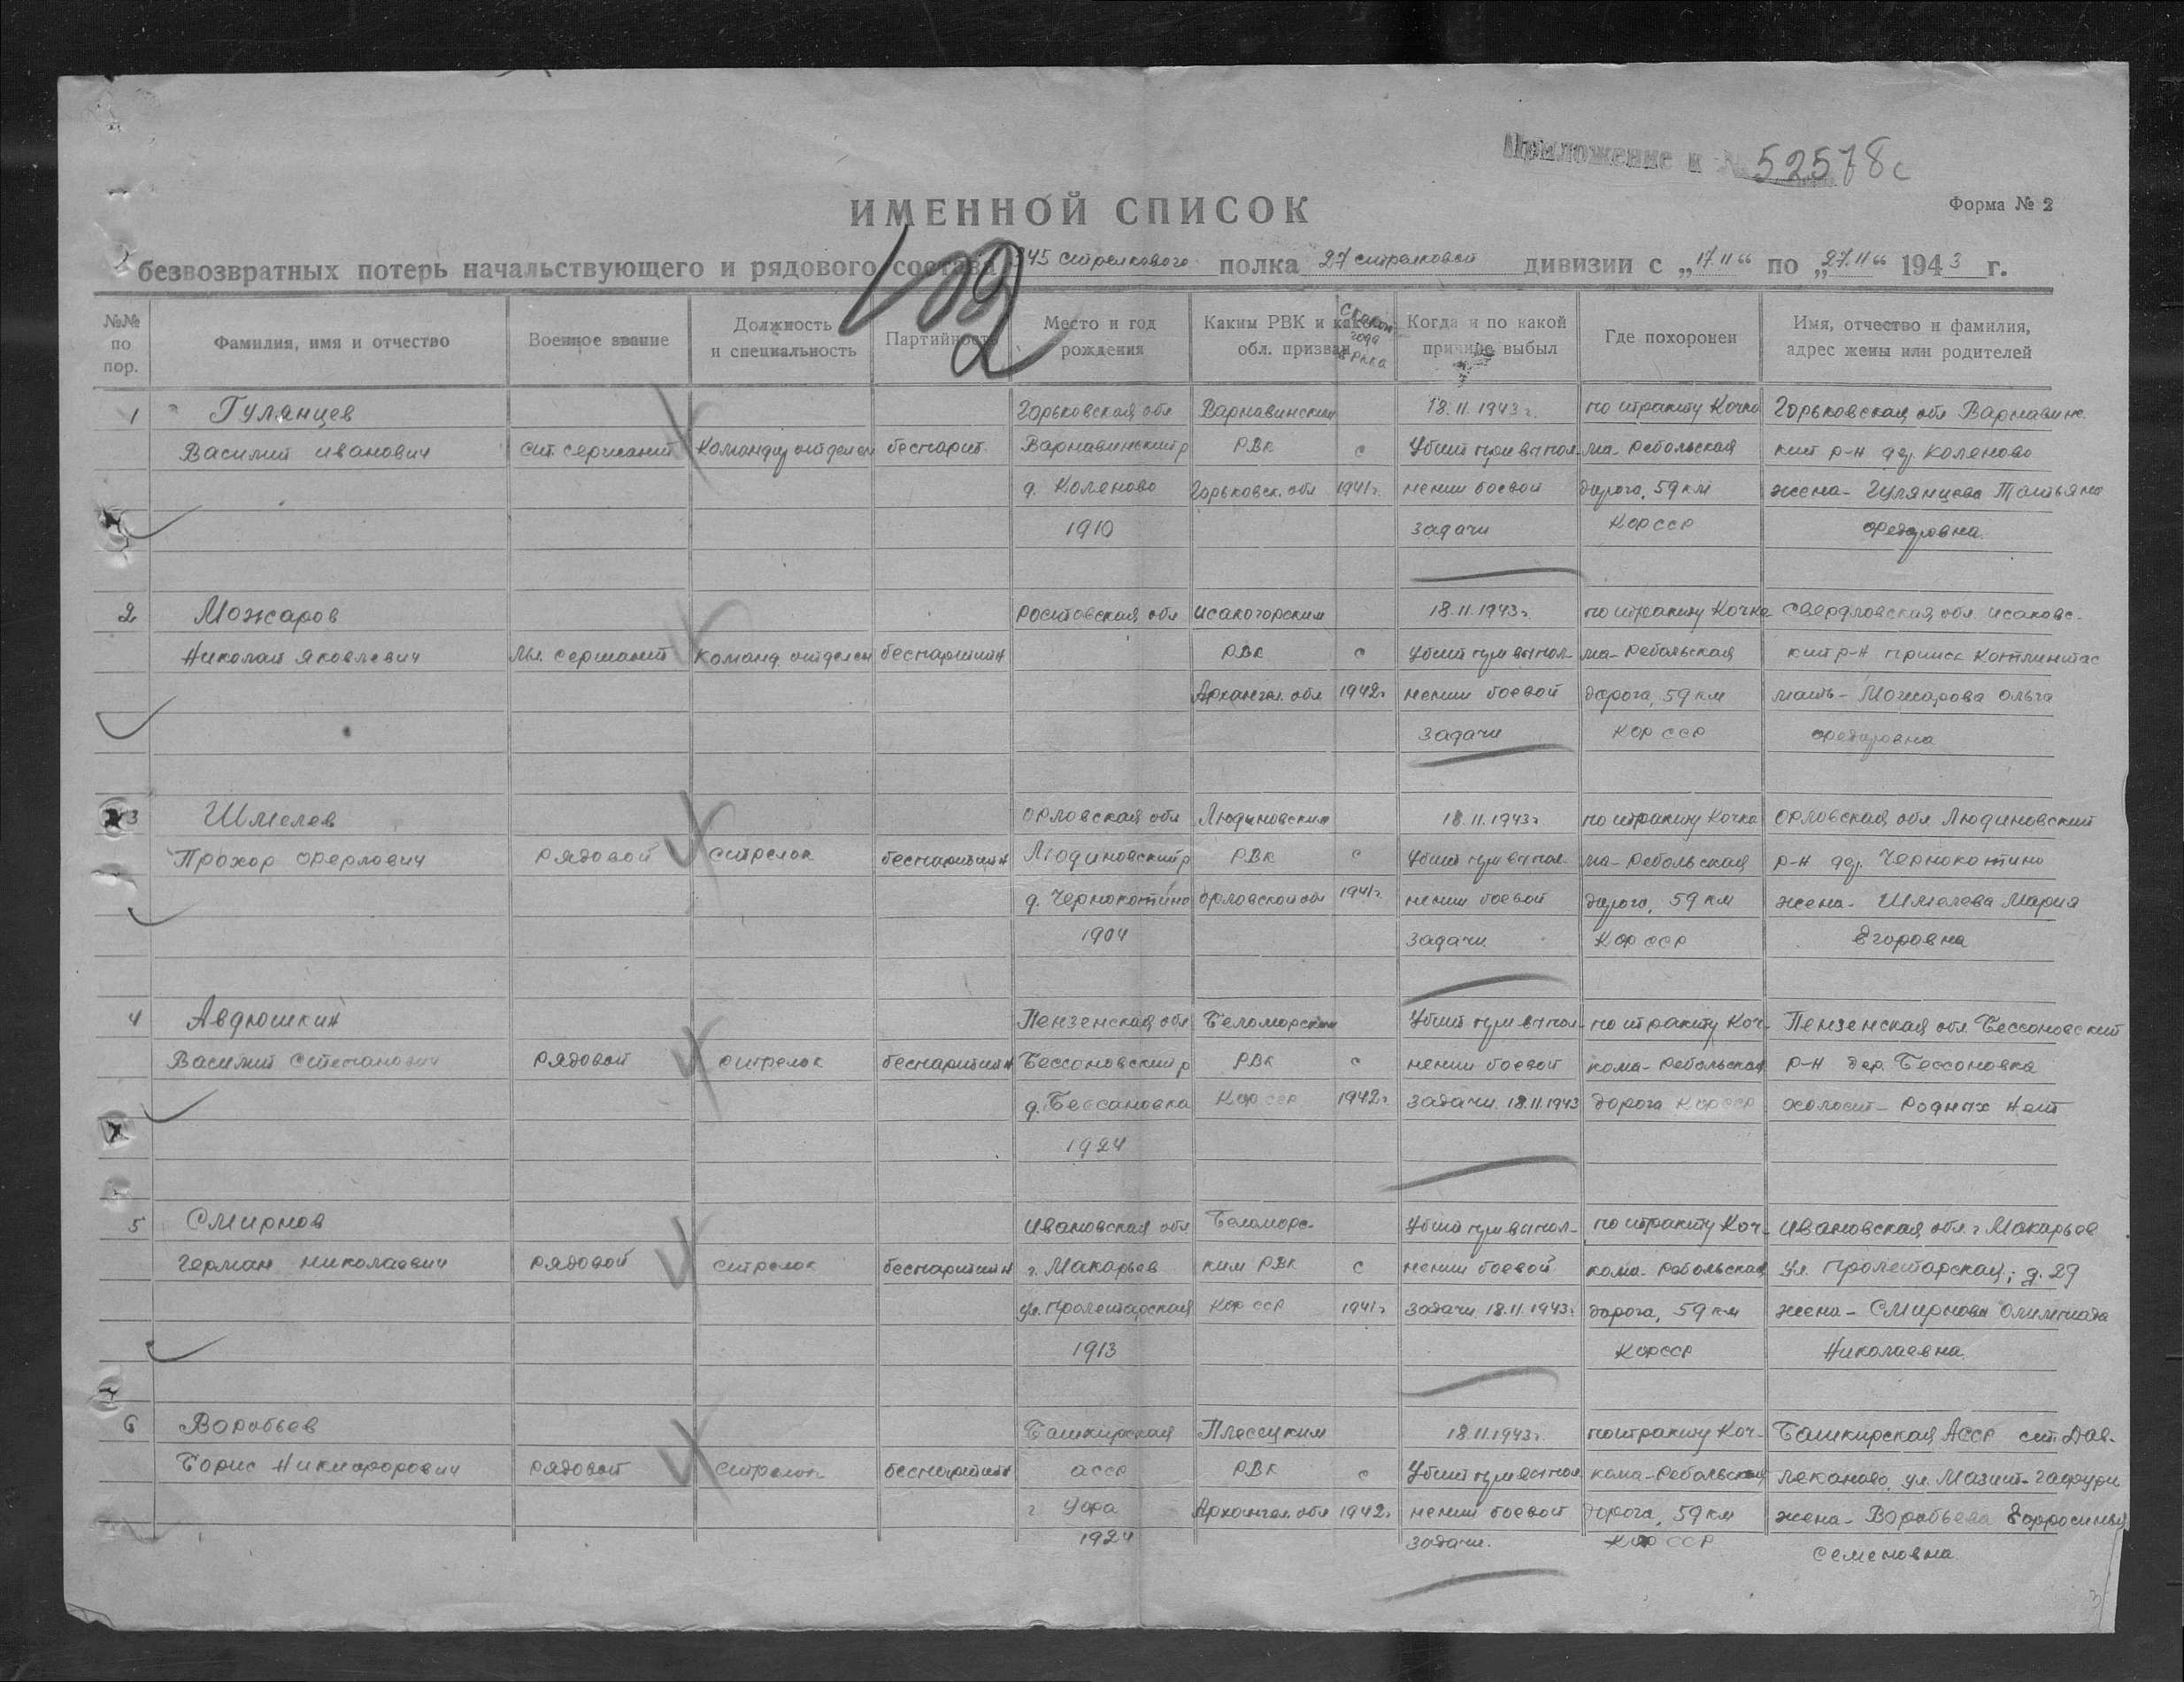 Приложение к № 52578с
ИМЕННОЙ СПИСОК
Форма № 2
безвозвратных потерь начальствующего и рядового состава 345 стрелкового полка 27 стрелковой дивизии с „17.11“ по „27.11“ 1943 г.
№№ по пор.
Фамилия, имя и отчество
Военное звание
Должность и специальность
Партийность
Место и год рождения
Каким РВК и какой обл. призван
с какого года в РККА
Когда и по какой причине выбыл
Где похоронен
Имя, отчество и фамилия, адрес жены или родителей
1 Гулянцев Горьковская обл Варнавинским 18.11.1943 г. по тракту Кочко Горьковская обл Варнавинс
Василий Иванович ст. сержант Командир отделен беспарт. Варнавинский р РВК с Убит при выпол ма-Ребольская кий р-н дер. Коленово
д. Коленово Горьковск. обл 1941 г. нении боевой дорога, 59 км жена - Гулянцева Татьяна
1910 задачи КФССР Федоровна
2 Можаров Ростовская обл Исакогорским 18.11.1943 г. по тракту Кочко Свердловская обл. Исаковс-
Николай Яковлевич мл. сержант Команд. отделен беспартийн РВК с Убит при выпол- ма-Ребольская кий р-н прииск
Архангел. обл 1942 г нении боевой дорога, 59 км мать - Можарова Ольга
задачи КФССР Федоровна
3 Шмелев Орловская обл Людиновским 18.11.1943 г по тракту Кочко Орловская обл Людиновский
Прохор рядовой стрелок беспартийн Людиновский р РВК с Убит при выпол- ма-Ребольская р-н дер. Чернокотино
д. Чернокотино Орловской обл 1941 г. нении боевой дорога, 59 км жена - Шмелева Мария
1904 задачи КФССР Егоровна
4 Авдюшкин Пензенская обл Беломорским Убит при выпол- по тракту Коч- Пензенская обл Бессоновский
Василий Степанович рядовой стрелок беспартийн Бессоновский р РВК с нении боевой кома-Ребольская р-н дер. Бессоновка
д. Бессановка КФССР 1942 г задачи 18.11.1943 дорога КФССР холост - Родных нет
1924
5 Смирнов Ивановская обл Беломорс- Убит при выпол- по тракту Коч- Ивановская обл. г Макарьев
Герман Николаевич рядовой стрелок беспартийн г. Макарьев ким РВК с нении боевой кома-Ребольская ул. Пролетарская, д. 29
ул. Пролетарская КФССР 1941 г задачи 18.11.1943 г. дорога, 59 км жена - Смирнова Олимпиада
1913 КФССР Николаевна
6 Воробьев Башкирская Плесецким 18.11.1943 г. по тракту Коч- Башкирская АССР ст. Дав-
Борис Никифорович рядовой стрелок беспартийн АССР РВК с Убит при выпол кома-Ребольская леканово, ул. Мазит-Гафури
г Уфа Архангел. обл 1942 г. нении боевой дорога, 59 км жена - Воробьева Ефросинья
1924 задачи. КФССР Семеновна